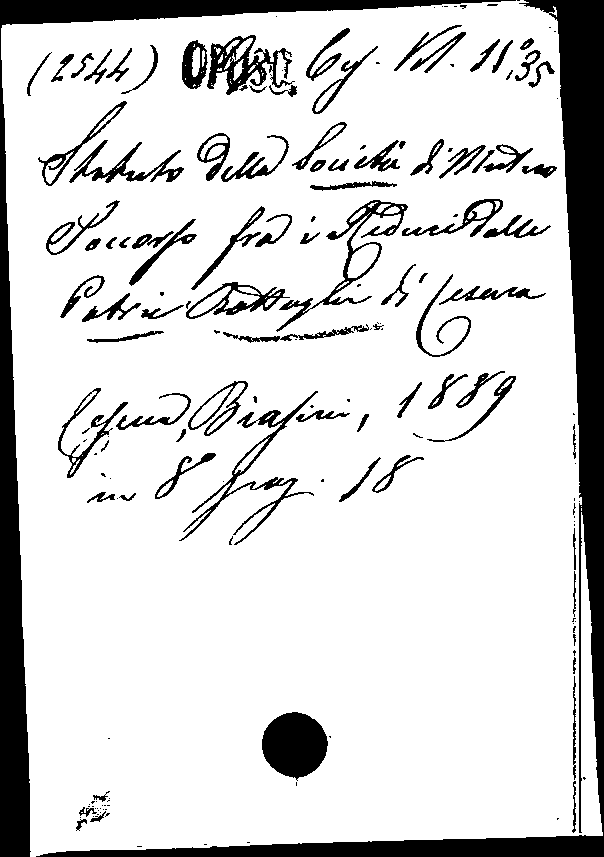 (2544) OPUSC. Ces. VI. 11°,35
Statuto della Società di Mutuo
Soccorso fra i Reduci Dalle
Patrie Battaglie di Cesena
Cesena, Biasini, 1889
in 8° pag. 18